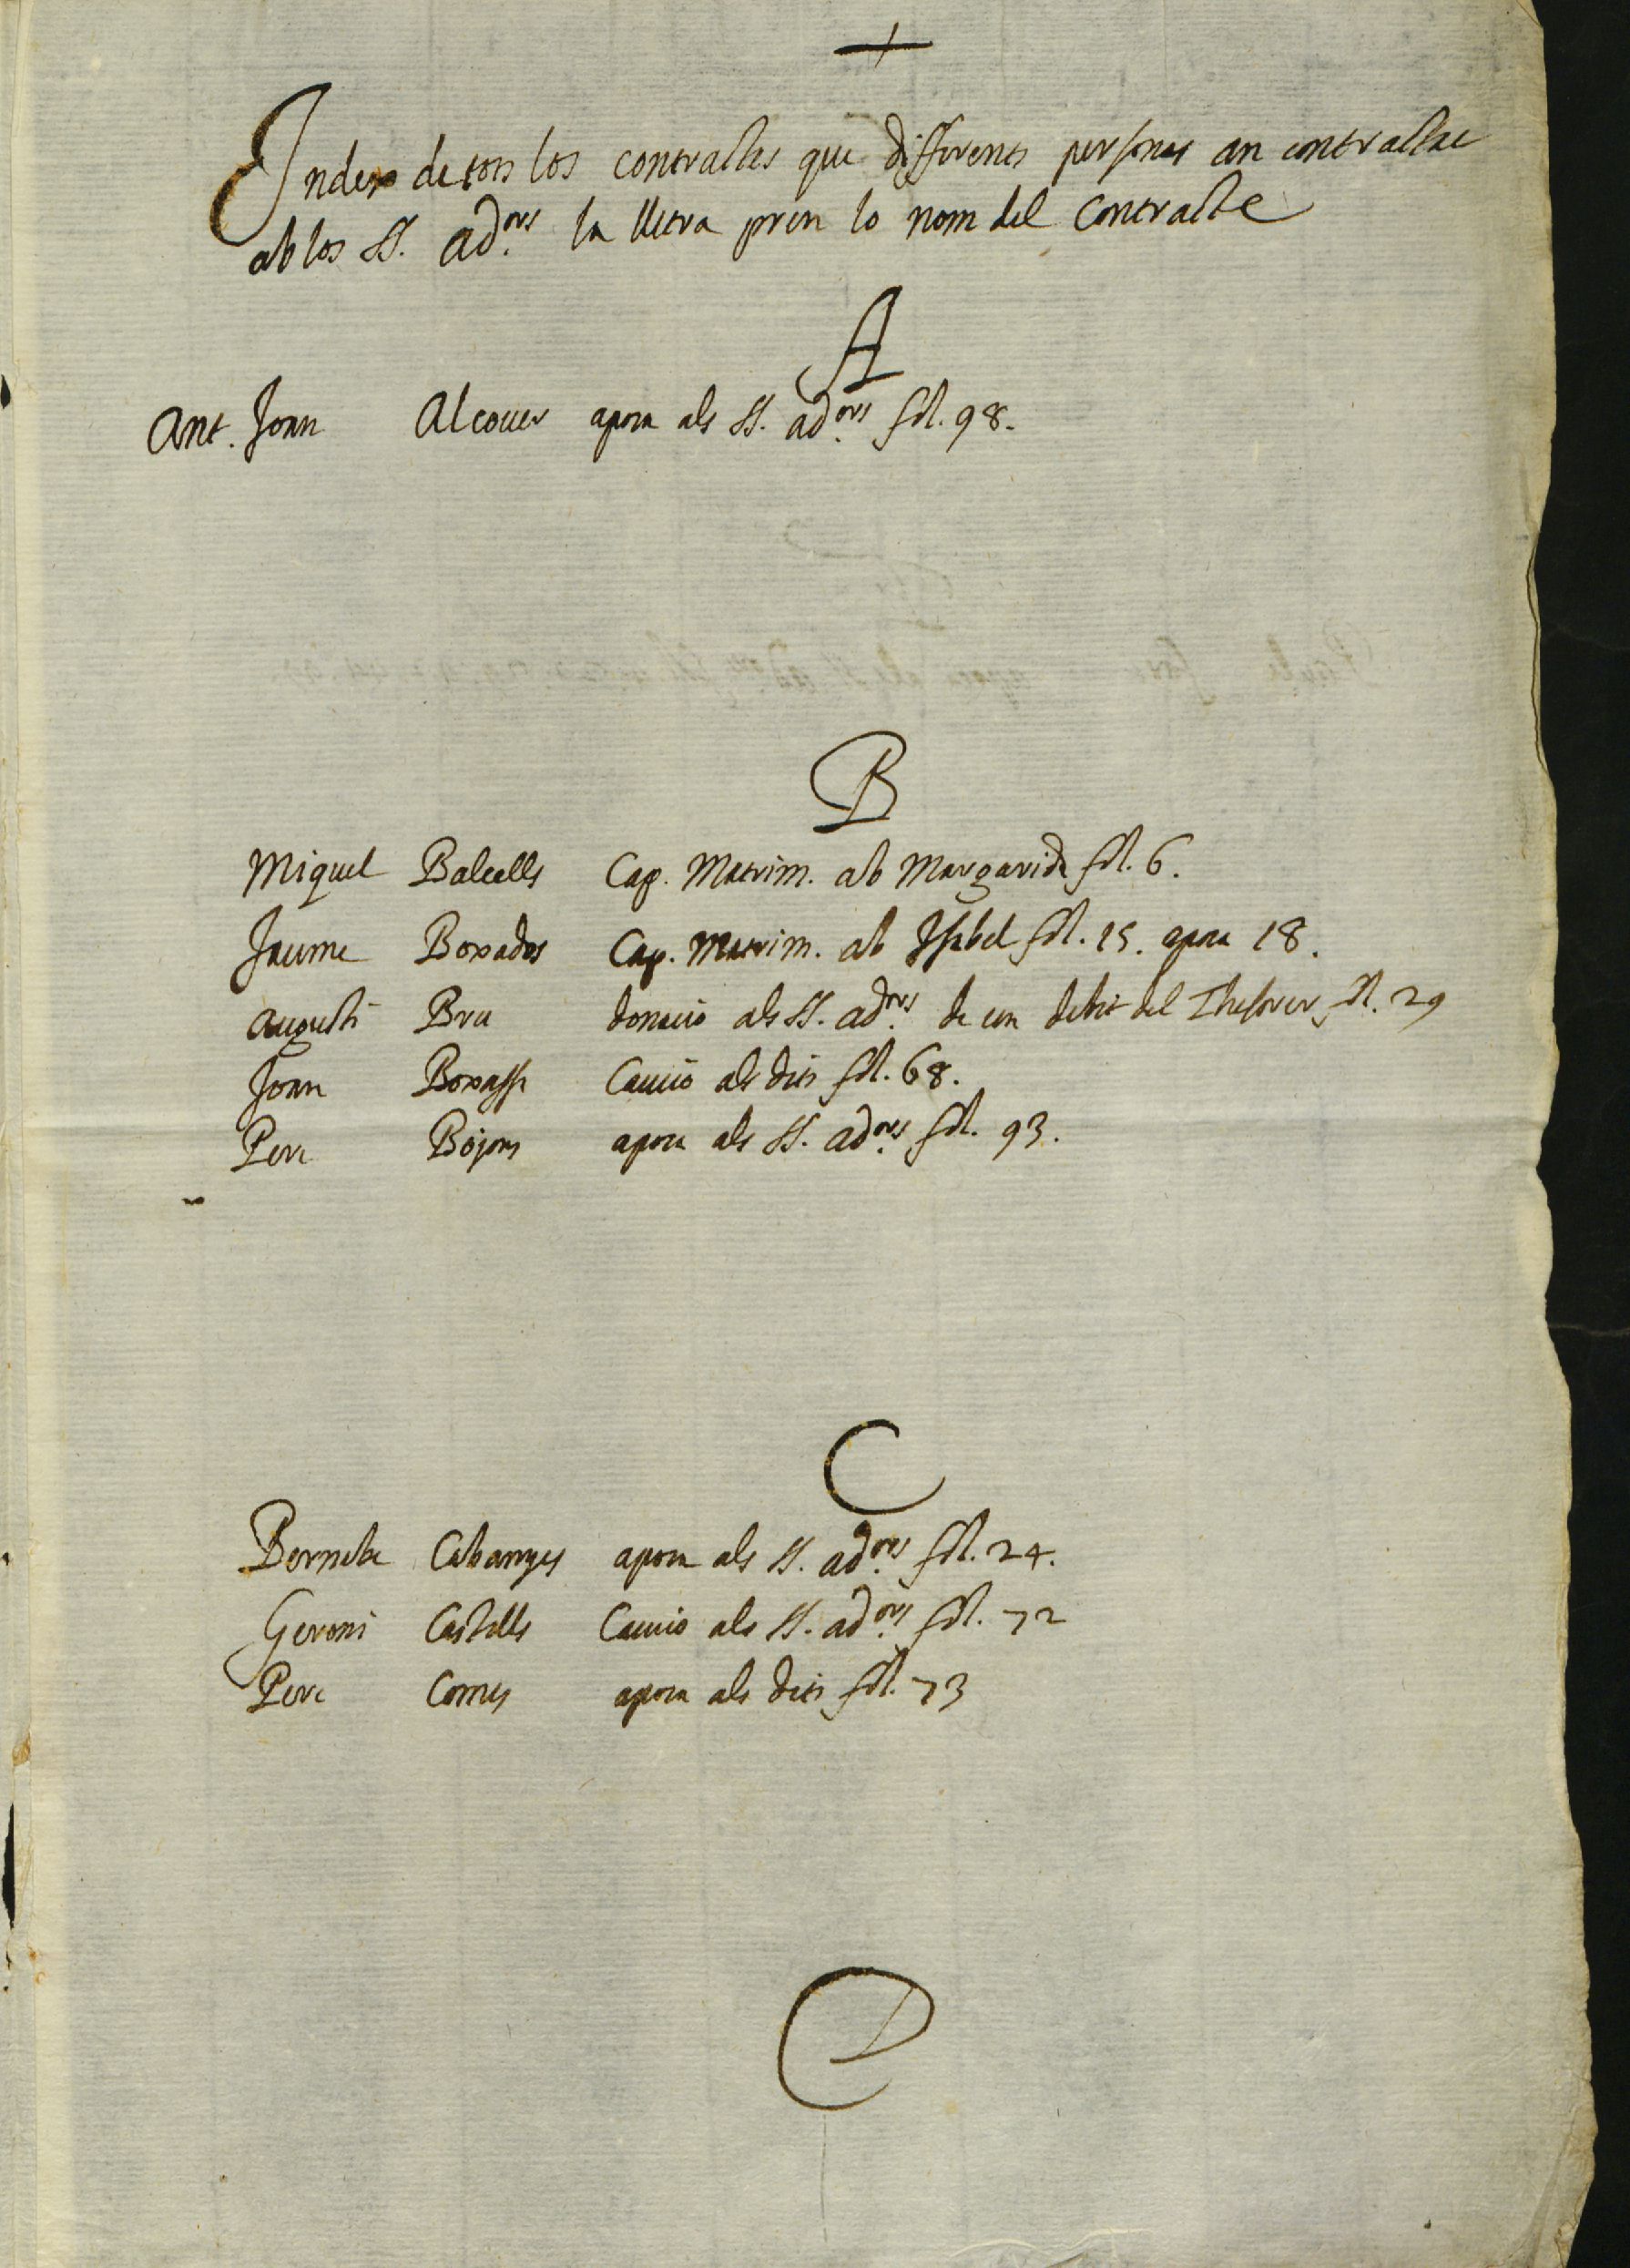 +
Index de tots los contractes que differents persones an contractat
ab los SS. ad.ors la lletra pren lo nom del Contracte
A
Ant. Joan Alcouer apoca als SS. ad.ors fol. 98.
B
Miquel Balcells Cap. Matrim. ab Margarida fol. 6.
Jaume Boxados Cap. Matrim. ab Isabel fol. 15. apoca 18.
Augusti Bru donacio als SS. ad.ors de un debit del Thesorer fol. 29
Joan Boxassa Caucio als dits fol. 68.
Pere Bojons apoca als SS. ad.ors fol. 93.
C
Bernabe Cabanyes apoca als SS. ad.ors fol. 24.
Geroni Castells Caucio als SS. ad.ors fol. 72
Pere Comes apoca als dits fol. 73
D